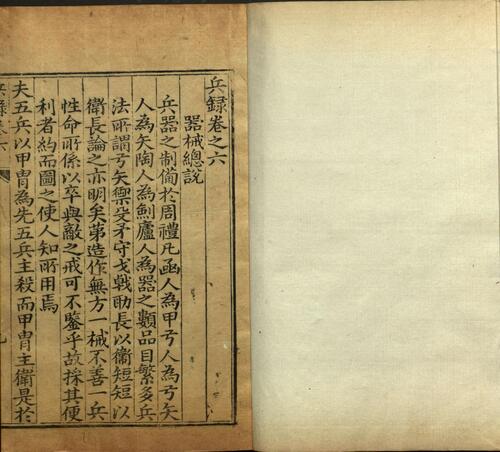 兵録卷之六
器械總說
兵器之制備於周禮凡函人為甲弓人為弓矢
人為矢陶人為劍廬人為器之類品目繁多兵
法所謂弓矢禦殳矛守戈戟助長以衞短短以
衛長論之亦明矣第造作無方一械不善一兵
性命所係以卒與敵之戒可不鑒乎故採其便
利者約而圖之使人知所用焉
夫五兵以甲冑為先五兵主殺而甲冑主衛是於
兵錄卷六